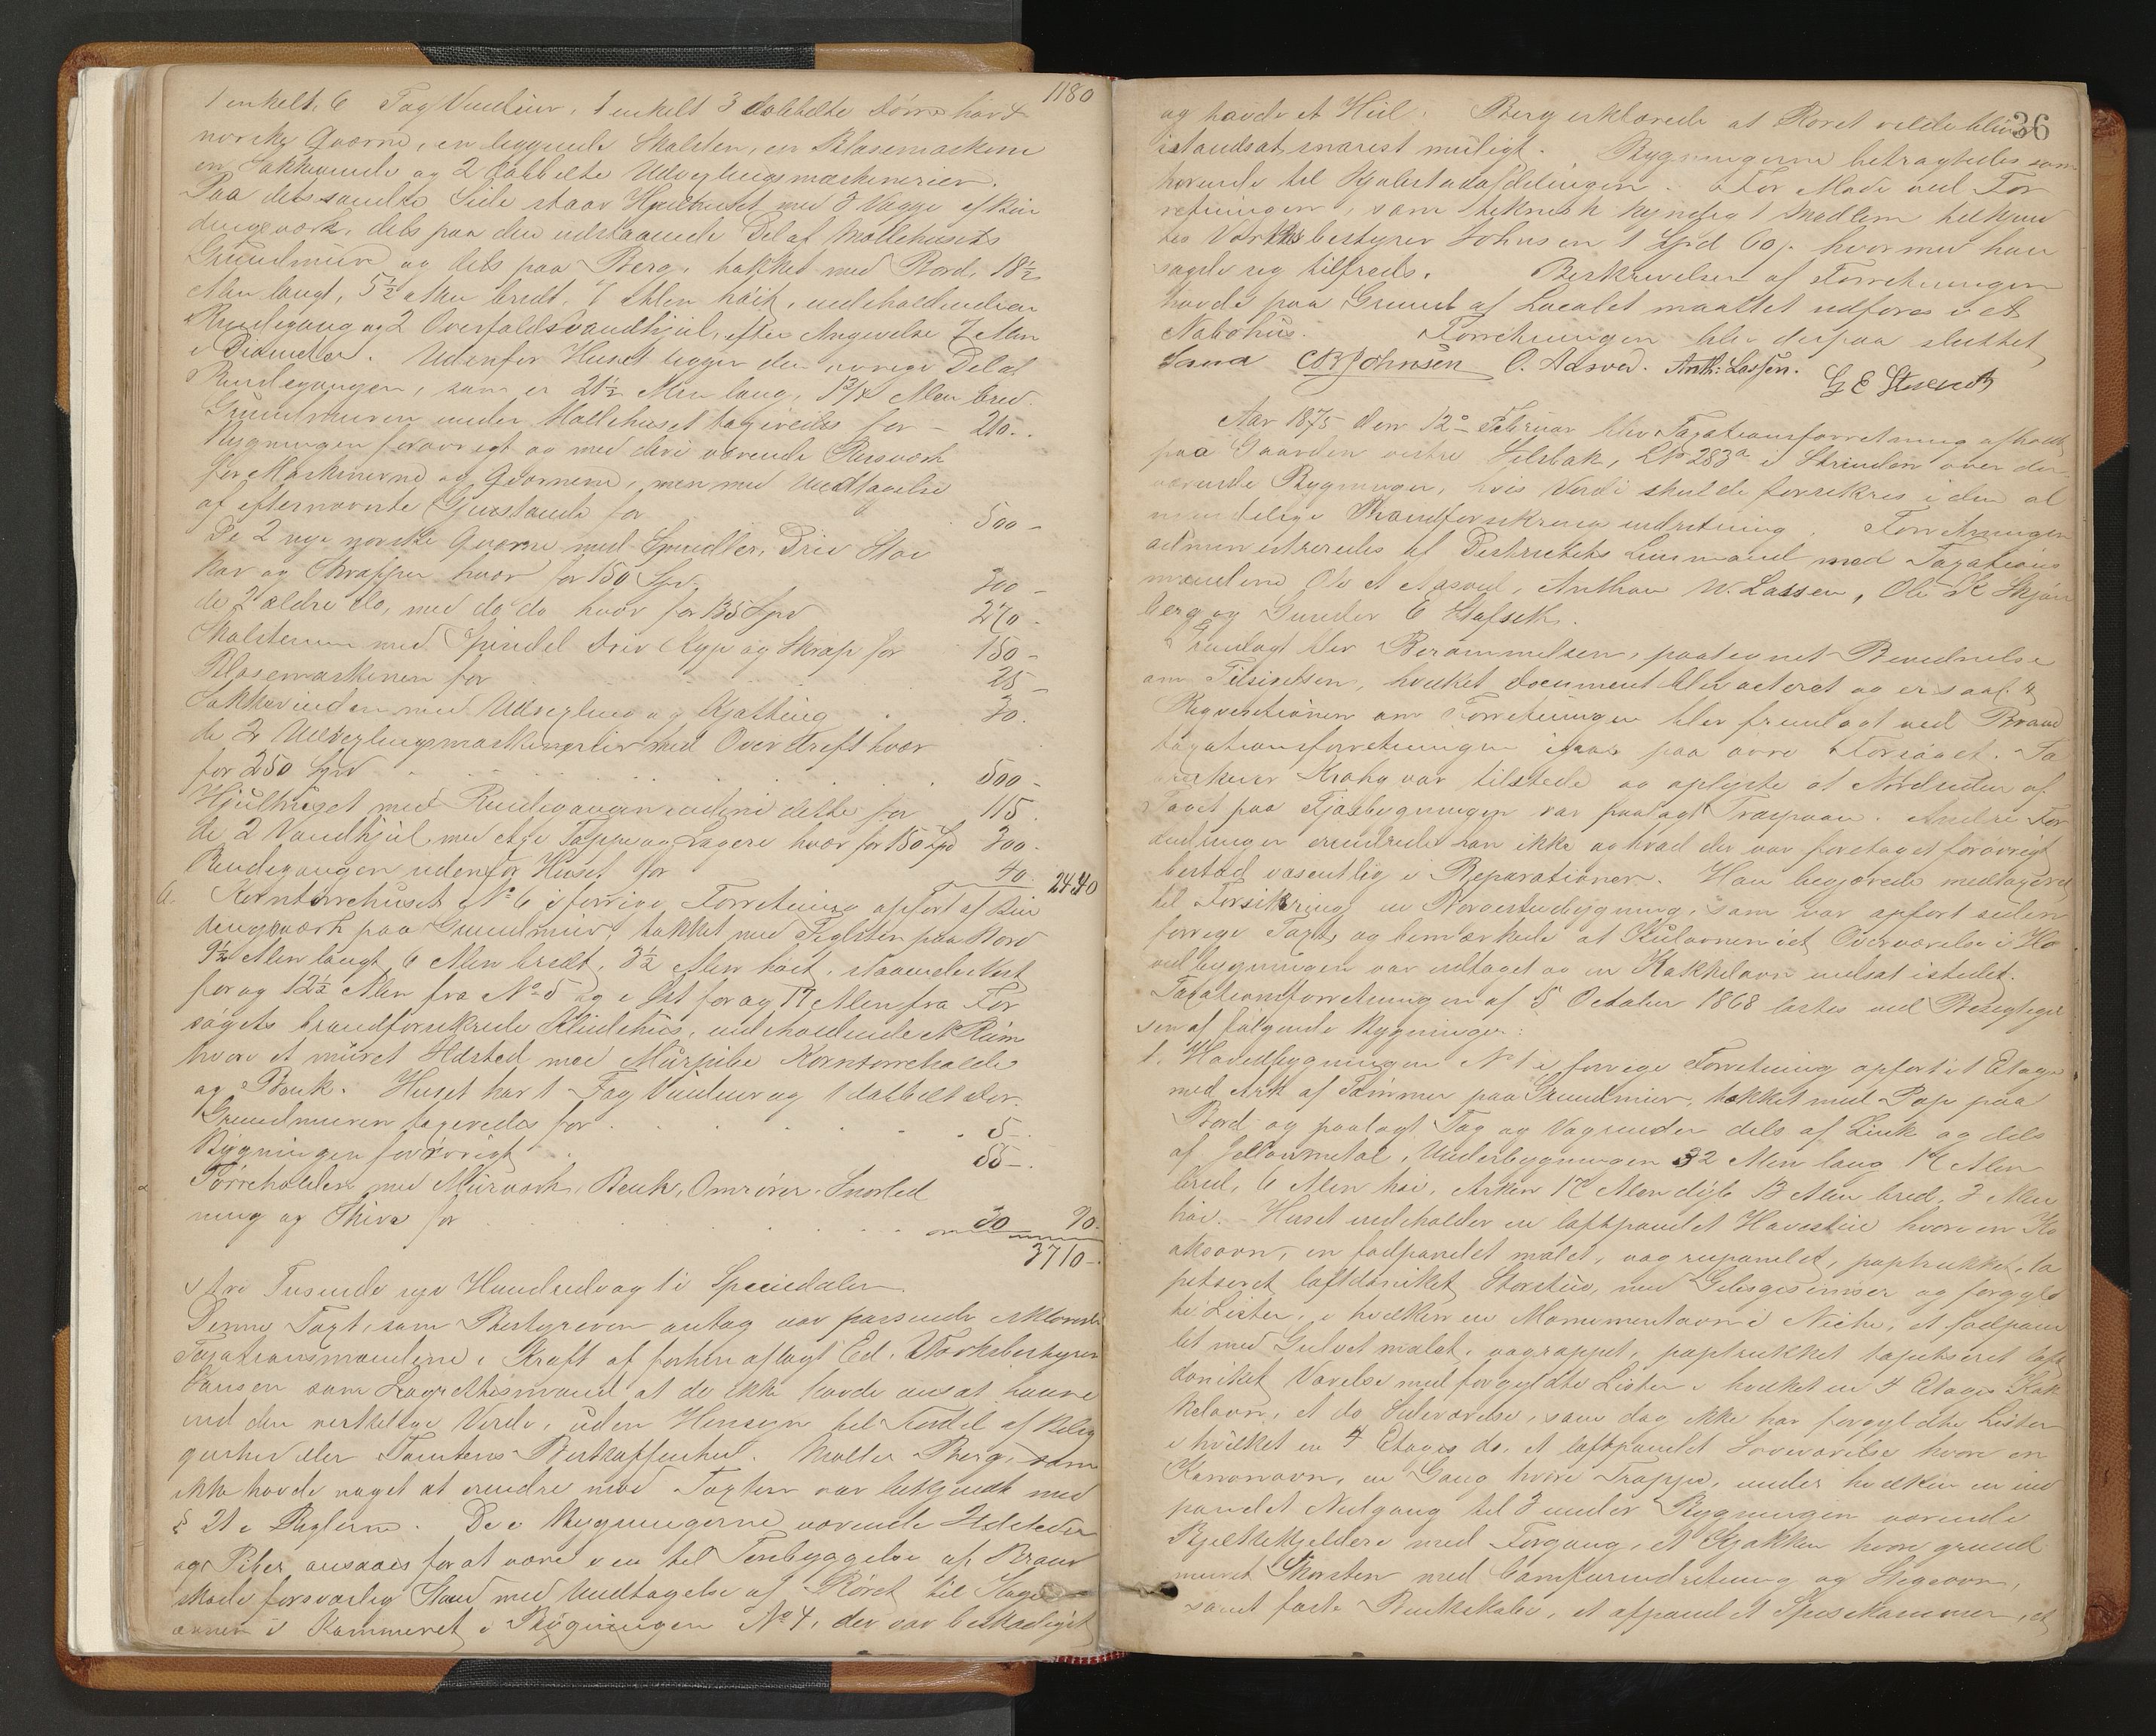 1180
1 enkelt, 6 Fag Vinduer, 1 enkelt 3 dobbelte Dörre havt
norske Qværne, en liggende Skalsten, en Blæsemaskine
en Sækkevinde og 2 dobbelte Udvexlingsmaskinerier.
Paa dets søndre Side staar Hjulhuset med 3 Vægge af Bin
dingsværk, dels paa den udstaaende Del af Möllehusets
Grundmuur og dels paa Berg, tækket med Bord, 18½
Alen langt, 5½ Alen bredt, 7 Alen höit, indeholdende en
Rendegang og 2 Overfaldsvandhjul, efter Angivelse 7 Alen
i Diameter. Udenfor Huset ligger den övrige Del af
Rendegangen, som er 21½ Alen lang, 1¾ Alen bred.
Grundmuren under Möllehuset taxeredes for – 210..
Bygningen forövrigt og med deri værende Russværk
for Maskinerne og Qværnene, men med Undtagelse
af efternævnte Gjenstande for 500 –
De 2 nye norske Qværne med Spindler, Driv Stol
kar og Skrapper hver for 150 Spd. 300 –
de 2 ældre do, med do do hver for 135 Spd 270 –
Skalstenen med Spindel Driv Kyp og Skrap for 150 –
Blæsemaskinen for 25 –
Sækkevinden med Udvexling og Kjætting 30.
de 2 Udvexlingsmaskinerier med Over Dreft hver
for 250 Spd 500 –
Hjulhuset med Rendegangen indeni dette for 115.
de 2 Vandhjul med Axe Tappe og Lagere hver for 150 Spd 300 –
Rendegangen udenfor Huset for 40. 2440
6. Korntörrehuset No 6 i forrige Forretning opfört af Bin
dingsværk paa Grundmuur, tækket med Teglsten paa Bord
9½ Alen langt, 6 Alen bredt, 3½ Alen höit, staaende Vest
for og 12½ Alen fra No 5 og i Öst for og 17 Alen fra For
sögets brandforsikrede Klidehus, indeholdende et Rum
hvori et muret Ildsted med Muurpibe Korntörrehelde
og Bænk. Huset har 1 Fag Vinduer og 1 dobbelt Dör.
Grundmuren taxeredes for 5 –.
Bygningen forövrigt 55 –.
Törrehelden med Muurværk, Bænk, Omrörer, Snorled
ning og Skive for 30 90.
3710 –.
Tre Tusende syv Hundrede og ti Speciedaler.
Denne Taxt, som Bestyreren antog var passende erklærede
Taxationsmændene i Kraft af forhen aflagt Ed, Værksbestyrer
Jansen som Laugrettesmand at de ikke havde ansat höiere
end den virkelige Værdi, uden Hensyn til Fordel af Belig
genhed eller Tomtens Beskaffenhed. Möller Berg, som
ikke havde noget at erindre mod Taxten var bekjendt med
§ 21 i Reglerne. De i Bygningerne værende Ildsteder
og Piber ansaaes for at være i en til Forebyggelse af Brand
skade forsvarlig Stand med Undtagelse af Röret til Kage
ovnen i Kammeret i Bygningen No 4, der var beskadiget
36
og havde et Hul. Berg erklærede at Röret vilde blive
istandsat snarest muligt. Bygningerne betragtedes som
hörende til Kjöbstadafdelingen. For Möde ved For
retningen, som teknisk kyndigt Medlem tilkjend
tes Værksbestyrer Johnsen 1 Spd 60 s. hvormed han
sagde sig tilfreds. Beskrivelsen af Forretningen
havde paa Grund af Localet maattet udföres i et
Nabohus. Forretningen blev derpaa sluttet
CB Johnsen O. Aasved. Anth: Lassen. G E Stavseth
Aar 1875 den 12te Februar blev Taxationsforretning afholdt
paa Gaarden vestre Stubak, LNo 283a i Strinden over der
værende Bygninger, hvis Værdi skulde forsikres i den al
mindelige Brandforsikringsindretning. Forretningen
administreredes af Distriktets Lensmand med Taxations
mændene Ole A Aasved, Anthon W. Lassen, Ole K Skjön
berg og Gunder E Stafseth.
Fremlagt blev Berammelsen, paategnet Bevidnelse
om Tilsidelsen, hvilket Document blev acteret og er saal.
Reqvisitionen om Forretningen blev fremlagt ved Brand
taxationsforretningen igaar paa övre Forsöget. Sa
gförer Krohg var tilstede og oplyste at Nordsiden af
Taget paa Fjösbygningen var paalagt Træspaan. Andre For
andringer erindrede han ikke og hvad der var foretaget forövrigt
bestod væsentlig i Reparationer. Han begjærede medtaget
til Forsikring en Norvestudbygning, som var opfört siden
forrige Taxt, og bemærkede at Kulovnen i et Overværelse i Ho
vedbygningen var udtaget og en Kakkelovn indsat istedet.
Taxationsforretningen af 5 October 1868 læstes ved Besigtigel
sen af fölgende Bygninger:
1. Hovedbygningen No 1 i forrige Forretning opfört i 1 Etage
med Ark af Tömmer paa Grundmuur, tækket med Pap paa
Bord og paalagt Tag og Vagrender dels af Zink og dels
af Jellovmetal, Underbygningen 32 Alen lang 17 Alen
bred, 6 Alen höi, Arken 17 Alen dyb 13 Alen bred, 3 Alen
höi. Huset indeholder en loftpanelet Havestue hvori en Ko
oksovn, en fodpanelet malet, vægrupanelet, paptrukket, ta
petseret loftdoniket Storstue, med Gibsgesimser og forgyld
te Lister, i hvilken en Monumentovn i Niche, et fodpane
let med Gulvet malet, vægrappet, paptrukket tapetseret loft
doniket Værelse med forgyldte Lister i hvilket en 4 Etages Kak
kelovn, et do Sideværelse, som dog ikke har forgyldte Lister
i hvilket en 4 Etages do, et loftpanelet Soveværelse hvori en
Kanonovn, en Gang hvori Trappe, under hvilken en ind
panelet Nedgang til 3 under Bygningen værende
Bjelkekjeldere med Forgang, et Kjökken hvori grund
muret Skorsten med Comfurindretning og Stegeovn,
samt faste Bænkskabe, et afpanelet Spisekammer, et